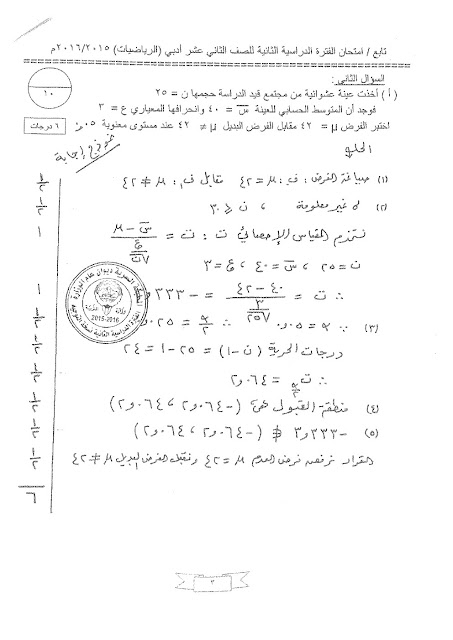 تابع / امتحان الفترة الدراسية الثانية للصف الثاني عشر أدبي (الرياضيات) ٢٠١٦/٢٠١٥م
السؤال الثاني :
١٠
( أ ) أخذت عينة عشوائية من مجتمع قيد الدراسة حجمها ن = ٢٥
فوجد أن المتوسط الحسابي للعينة س̄ = ٤٠ وانحرافها المعياري ع = ٣
اختبر الفرض μ = ٤٢ مقابل الفرض البديل μ ≠ ٤٢ عند مستوى معنوية ٠,٠٥
٦ درجات
نموذج إجابة
الحل:
(١) صياغة الفرض: ف. : μ = ٤٢ مقابل ف١ : μ ≠ ٤٢
١/٢
(٢) σ غير معلومة ، ن ≤ ٣٠
١/٢
نستخدم القياس الإحصائي ت : ت = (س̄ - μ) / (ع / √ن)
١
ن = ٢٥ ، س̄ = ٤٠ ، ع = ٣
∴ ت = (٤٠ - ٤٢) / (٣ / √٢٥) = -٣,٣٣٣
١
(٣) ∵ α = ٠,٠٥ ∴ α/٢ = ٠,٠٢٥
١/٢
درجات الحرية (ن - ١) = ٢٥ - ١ = ٢٤
١/٢
∴ ت α/٢ = ٢,٠٦٤
١/٢
(٤) منطقة القبول هي (-٢,٠٦٤ ، ٢,٠٦٤)
١/٢
(٥) -٣,٣٣٣ ∉ (-٢,٠٦٤ ، ٢,٠٦٤)
١/٢
القرار نرفض فرض العدم μ = ٤٢ ونقبل الفرض البديل μ ≠ ٤٢
١/٢
٦
2015-2016
٣